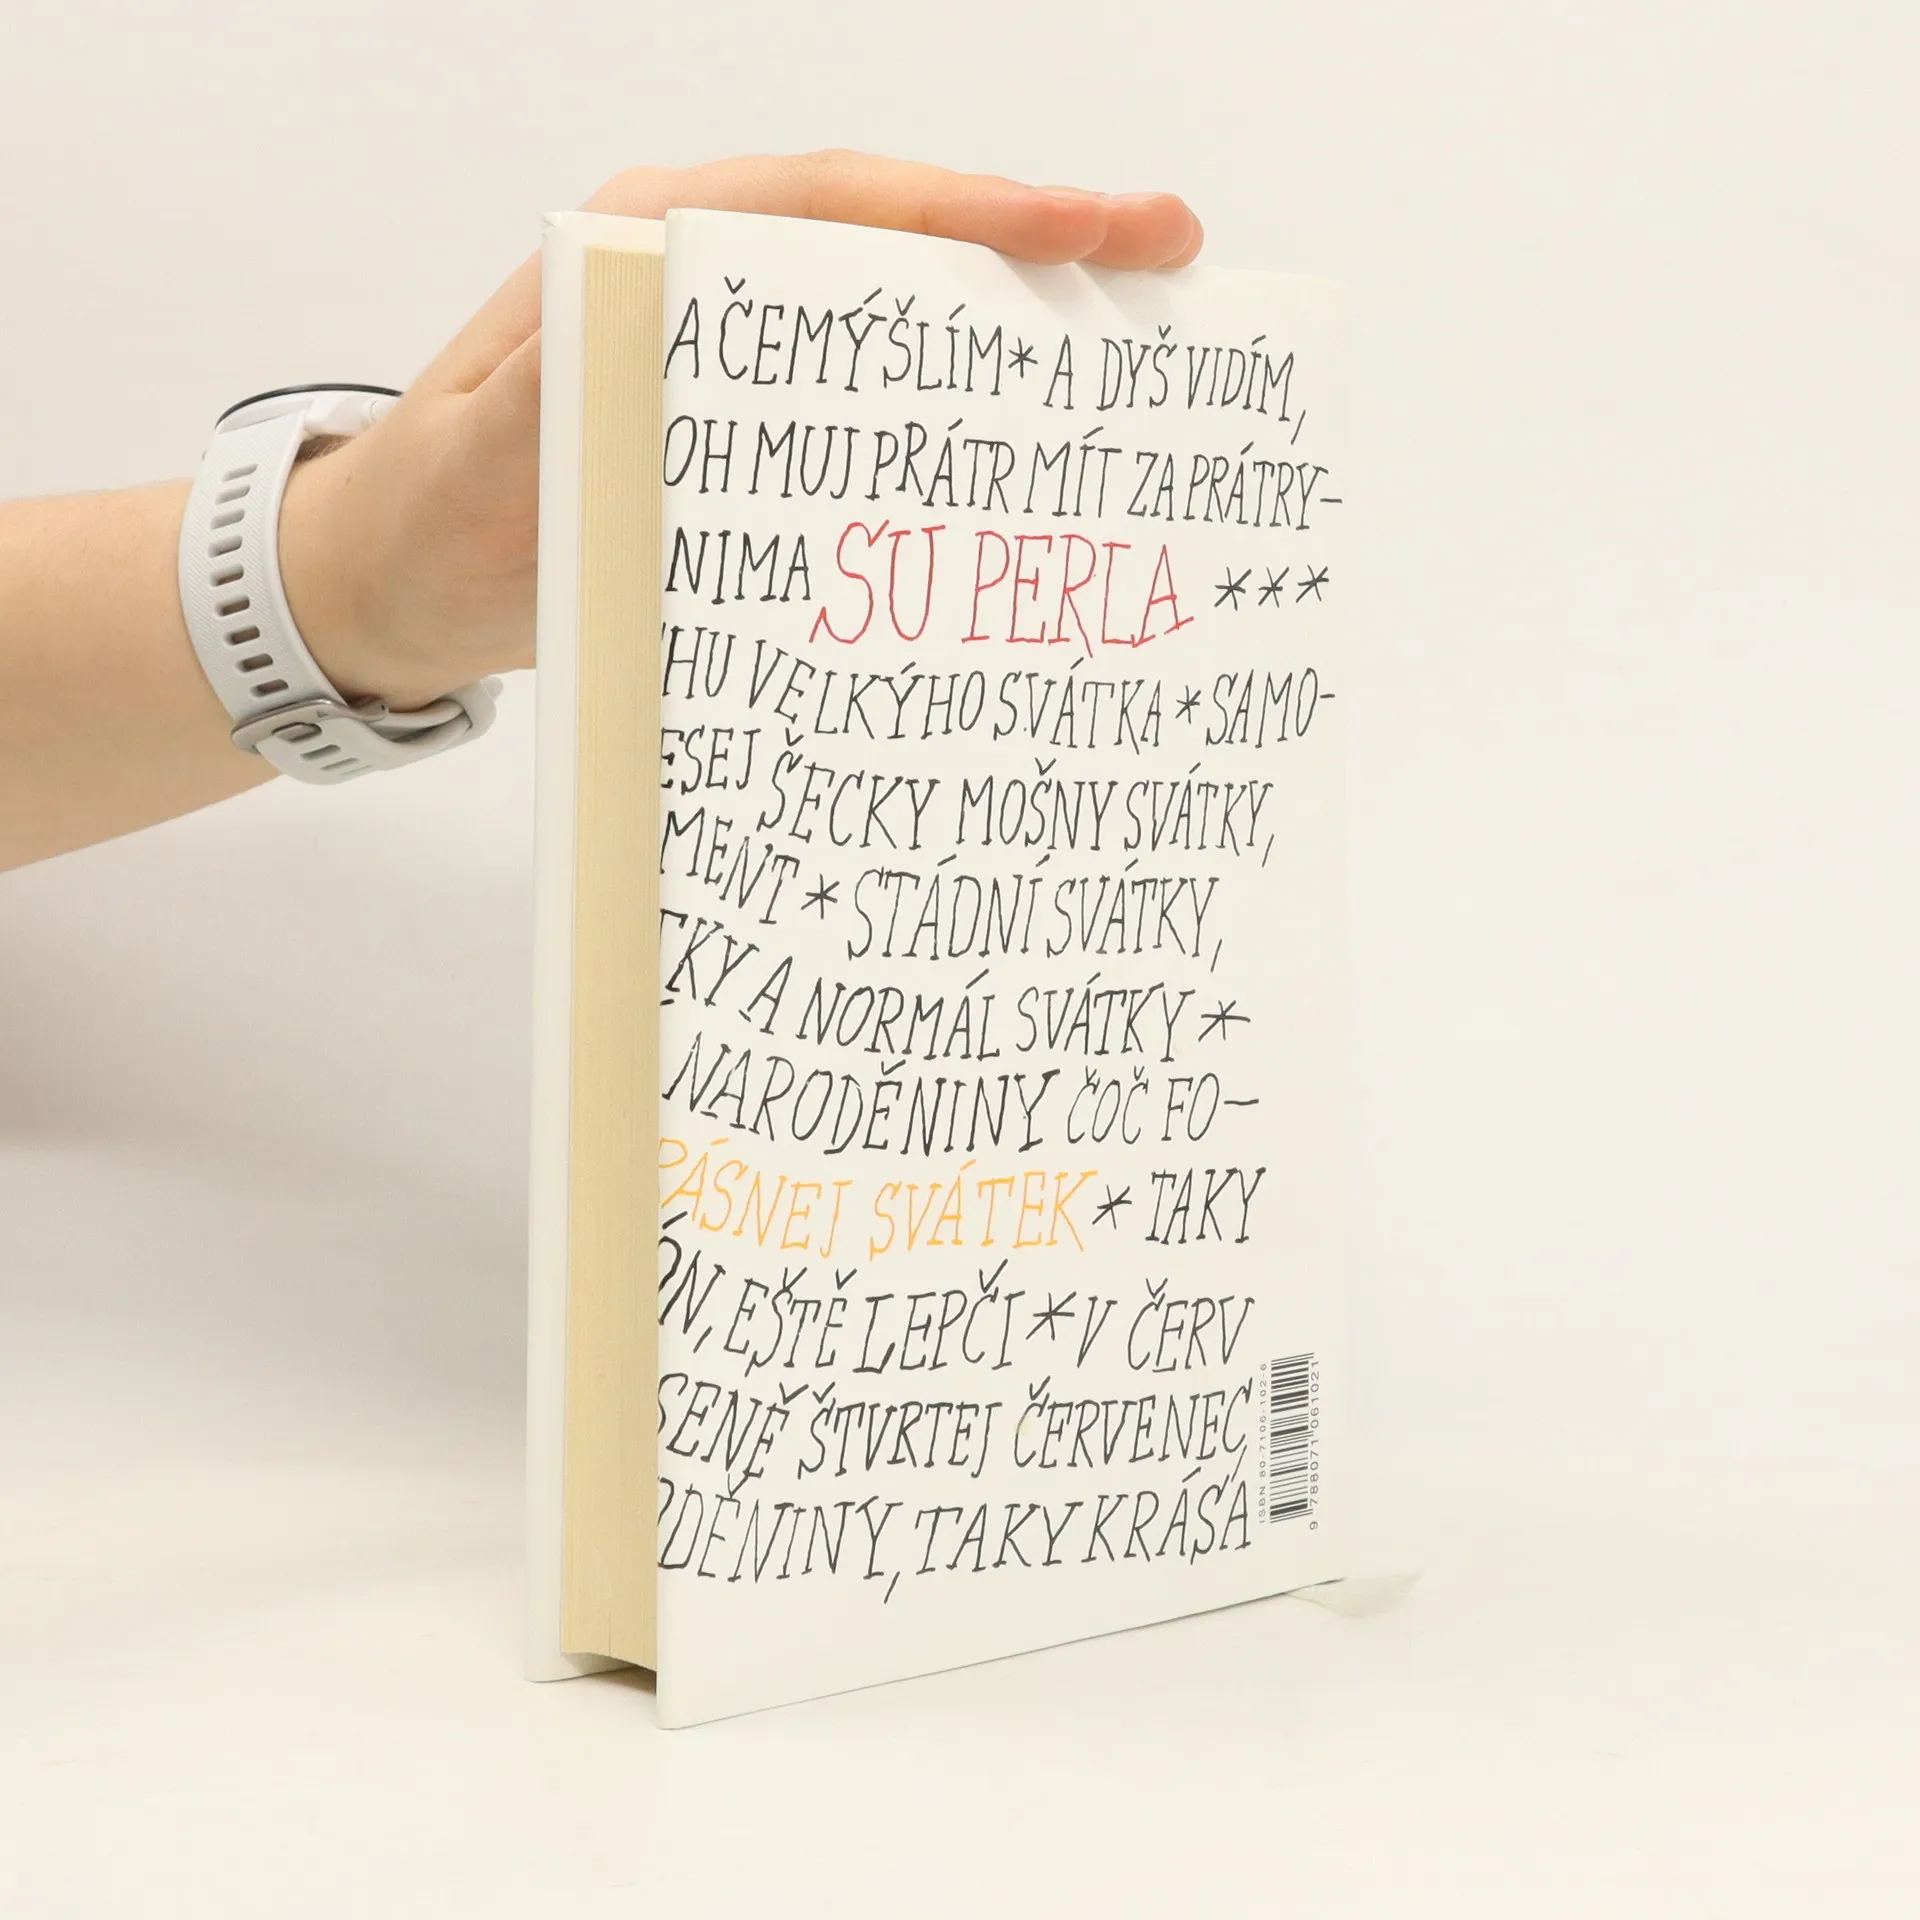 A ČEMÝŠLÍM * A DYŠ VIDÍM,
OH MUJ PRÁTR MÍT ZA PRÁTRY-
NIMA SU PERLA ***
HU VELKÝHO SVÁTKA * SAMO-
ESEJ ŠECKY MOŠNY SVÁTKY,
MENT * STÁDNÍ SVÁTKY,
TKY A NORMÁL SVÁTKY *
NARODĚNINY ČOČ FO-
PÁSNEJ SVÁTEK * TAKY
ÓN, EŠTĚ LEPČI * V ČERV
SENĚ ŠTVRTEJ ČERVENEC,
DĚNINY, TAKY KRÁSÁ
ISBN 80-7106-102-6
9 788071 061021